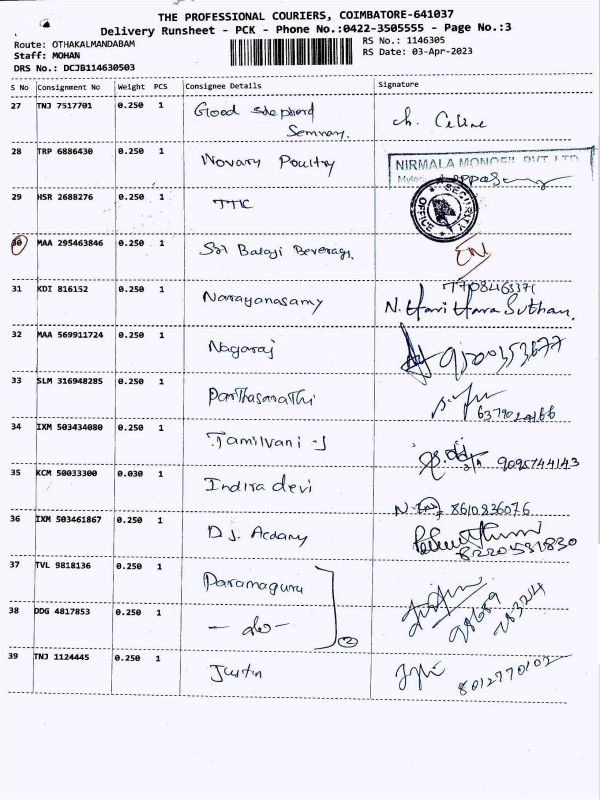 THE PROFESSIONAL COURIERS, COIMBATORE-641037
Delivery Runsheet - PCK - Phone No.:0422-3505555 - Page No.:3
Route: OTHAKALMANDABAM
RS No.: 1146305
Staff: MOHAN
RS Date: 03-Apr-2023
DRS No.: DCJB114630503
S No Consignment No Weight PCS Consignee Details Signature
27 TNJ 7517701 0.250 1 Good Shepherd
ch. Celine
28 TRP 6886430 0.250 1 Novary Poultry
NIRMALA MONOFIL PVT LTD
29 HSR 2688276 0.250 1 TTK
SECURITY OFFICE
30 MAA 295463846 0.250 1 Sri Balaji Beverags.
31 KDI 816152 0.250 1 Narayanasamy
N. Hari Hara Suthan.
32 MAA 569911724 0.250 1 Nagaraj
33 SLM 316948285 0.250 1 Parthasarathi
34 IXM 503434080 0.250 1 Tamilvani - J
9095744143
35 KCM 50033300 0.030 1 Indira devi
8610836076
36 IXM 503461867 0.250 1 D J. Acdany
8220531830
37 TVL 9818136 0.250 1 Paramaguru
38 DDG 4817853 0.250 1 - do - 2
39 TNJ 1124445 0.250 1 Justin
8012770102